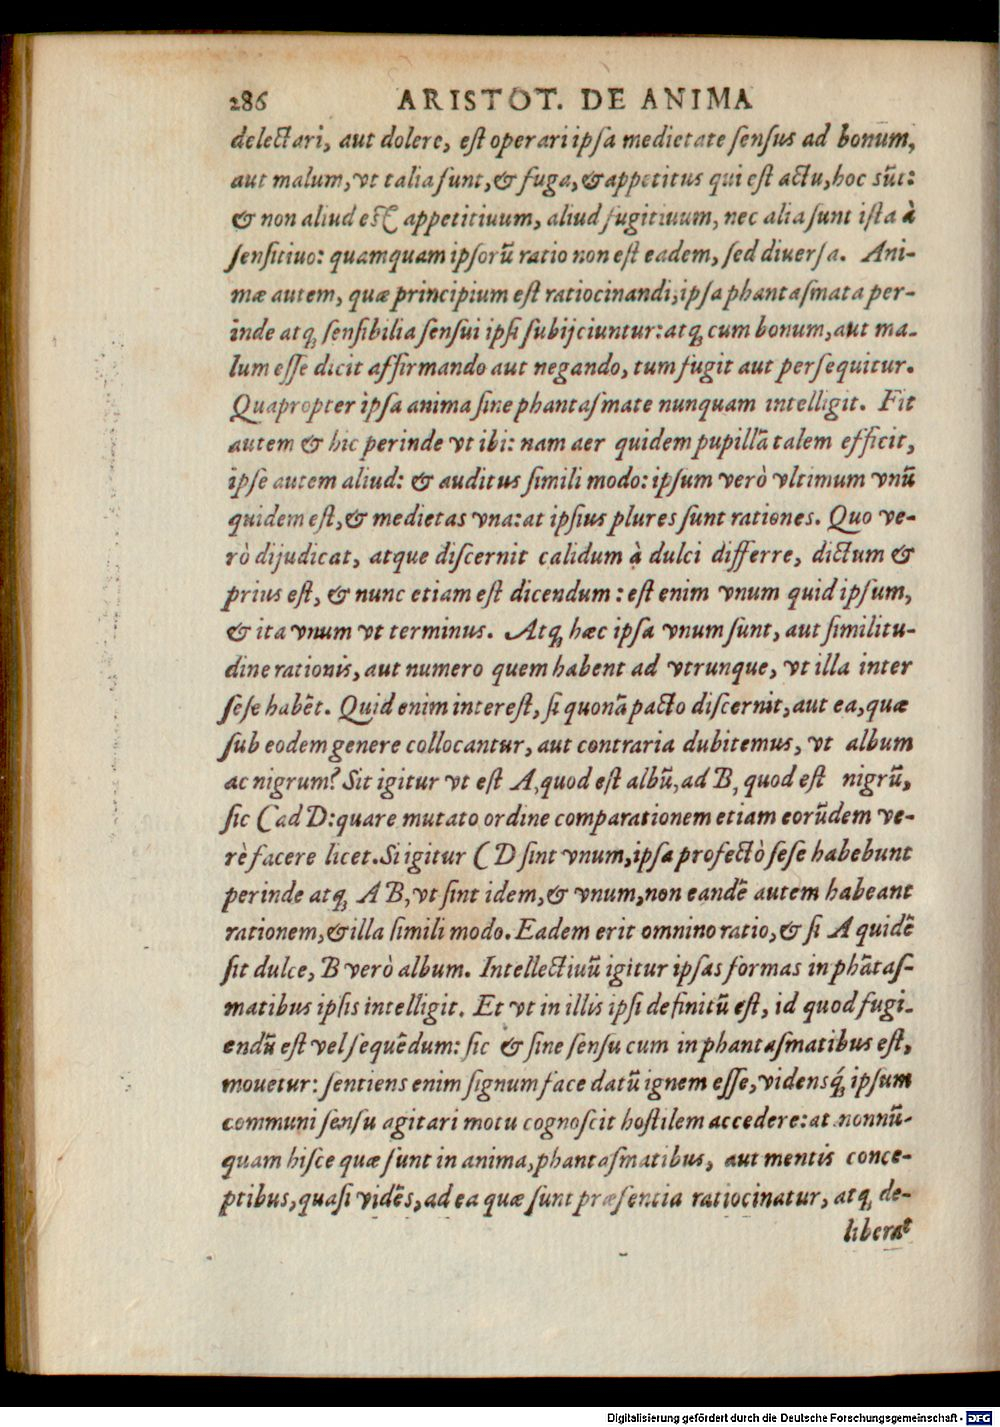 286 ARISTOT. DE ANIMA
delectari, aut dolere, eſt operari ipſa medietate ſenſus ad bonum,
aut malum, vt talia ſunt, & fuga, & appetitus qui eſt actu, hoc sūt:
& non aliud eſt appetitiuum, aliud fugitiuum, nec alia ſunt iſta à
ſenſitiuo: quamquam ipſorū ratio non eſt eadem, ſed diuerſa. Ani-
mæ autem, quæ principium eſt ratiocinandi, ipſa phantaſmata per-
inde atq; ſenſibilia ſenſui ipſi ſubijciuntur: atq; cum bonum, aut ma-
lum eſſe dicit affirmando aut negando, tum fugit aut perſequitur.
Quapropter ipſa anima ſine phantaſmate nunquam intelligit. Fit
autem & hic perinde vt ibi: nam aer quidem pupillā talem efficit,
ipſe autem aliud: & auditus ſimili modo: ipſum verò vltimum vnū
quidem eſt, & medietas vna: at ipſius plures ſunt rationes. Quo ve-
rò dijudicat, atque diſcernit calidum à dulci differre, dictum &
prius eſt, & nunc etiam eſt dicendum: eſt enim vnum quid ipſum,
& ita vnum vt terminus. Atq; hæc ipſa vnum ſunt, aut ſimilitu-
dine rationis, aut numero quem habent ad vtrunque, vt illa inter
ſeſe habēt. Quid enim intereſt, ſi quonā pacto diſcernit, aut ea, quæ
ſub eodem genere collocantur, aut contraria dubitemus, vt album
ac nigrum? Sit igitur vt eſt A, quod eſt albū, ad B, quod eſt nigrū,
ſic C ad D: quare mutato ordine comparationem etiam eorūdem ve-
rè facere licet. Si igitur C D ſint vnum, ipſa profectò ſeſe habebunt
perinde atq; A B, vt ſint idem, & vnum, non eandē autem habeant
rationem, & illa ſimili modo. Eadem erit omnino ratio, & ſi A quidē
ſit dulce, B verò album. Intellectiuū igitur ipſas formas in phātaſ-
matibus ipſis intelligit. Et vt in illis ipſi definitū eſt, id quod fugi-
endū eſt vel ſequēdum: ſic & ſine ſenſu cum in phantaſmatibus eſt,
mouetur: ſentiens enim ſignum face datū ignem eſſe, vidensq́; ipſum
communi ſenſu agitari motu cognoſcit hoſtilem accedere: at nonnū-
quam hiſce quæ ſunt in anima, phantaſmatibus, aut mentis conce-
ptibus, quaſi vidēs, ad ea quæ ſunt præſentia ratiocinatur, atq; de-
liberat
Digitalisierung gefördert durch die Deutsche Forschungsgemeinschaft - DFG